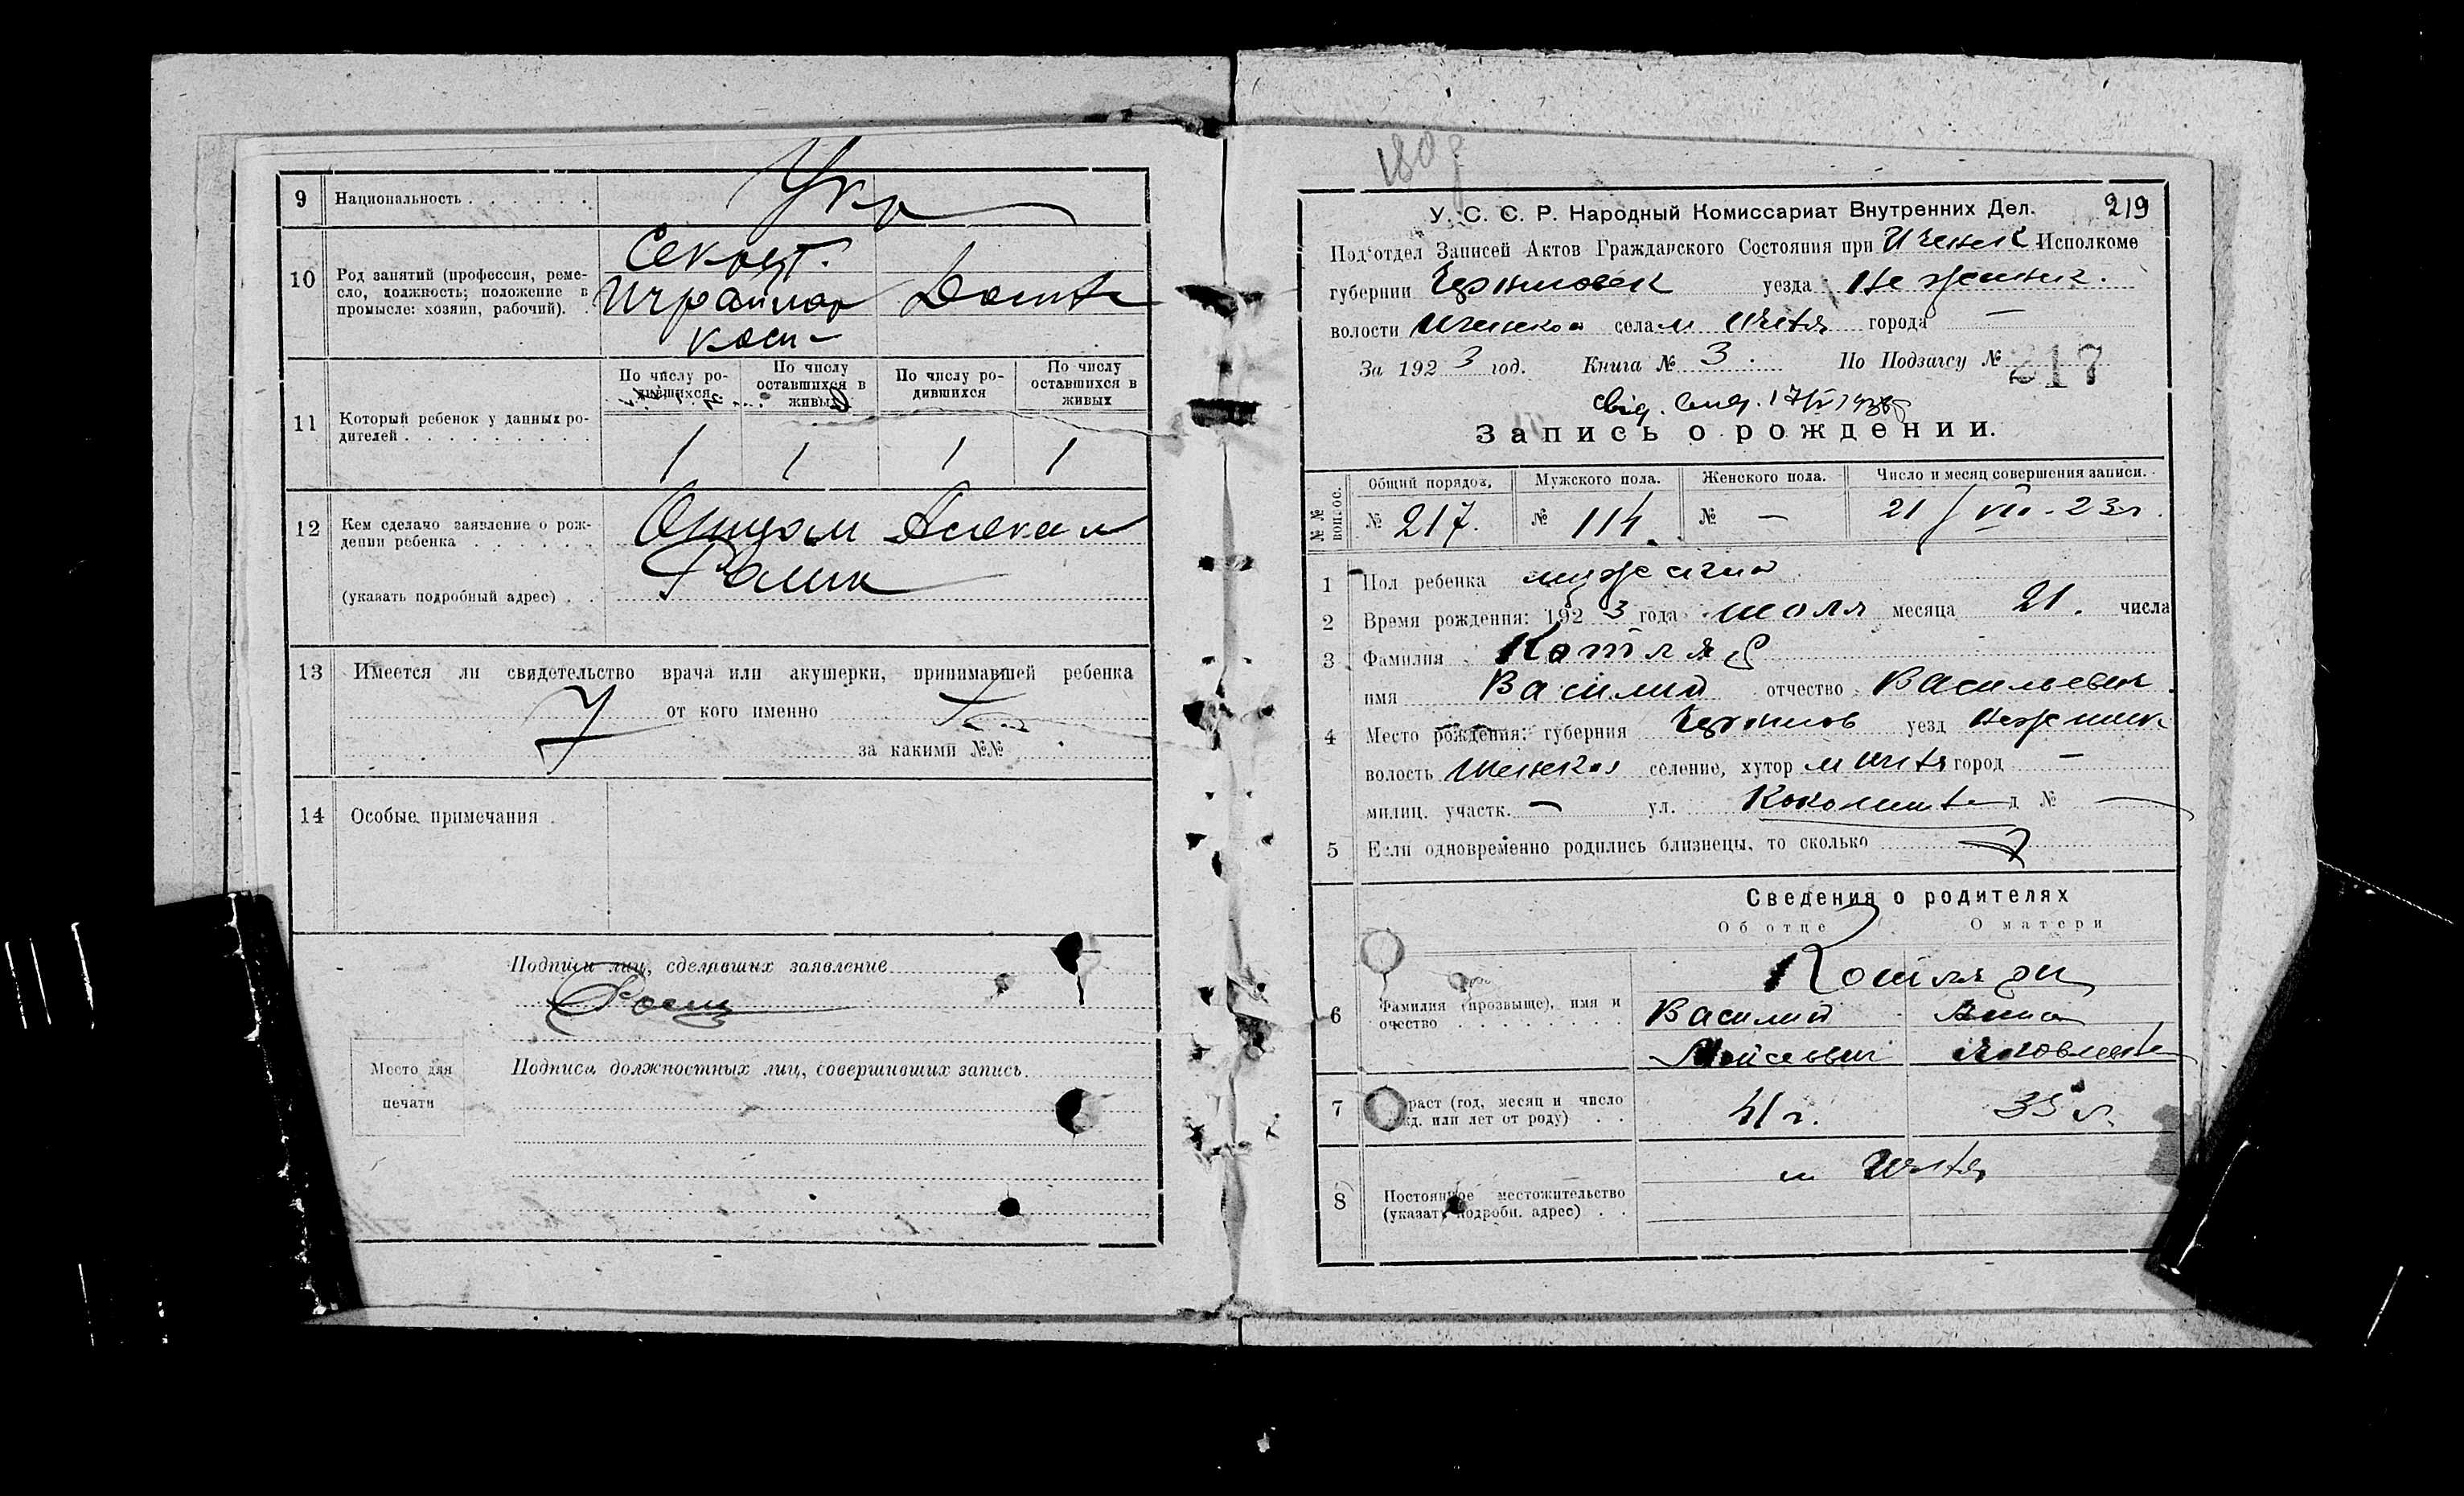 9 Национальность Укр
10 Род занятий (профессия, реме-
сло, должность; положение в
промысле: хозяин, рабочий).
Секрет.
Домаш
11 Который ребенок у данных ро-
дителей
По числу ро-
дившихся
По числу
оставшихся в
живых
По числу ро-
дившихся
По числу
оставшихся в
живых
1 1 1 1
12 Кем сделано заявление о рож-
дении ребенка
(указать подробный адрес)
13 Имеется ли свидетельство врача или акушерки, принимавшей ребенка
от кого именно
за какими №№
14 Особые примечания
Подписи лиц, сделавших заявление
Место для
печати
Подписи должностных лиц, совершивших запись
У. С. С. Р. Народный Комиссариат Внутренних Дел. 219
Под‘отдел Записей Актов Гражданского Состояния при Иченск Исполкоме
губернии Черниговск уезда Нежинск.
волости Иченской села м Ичня города —
За 1923 год. Книга № 3. По Подзагсу № 217
Запись о рождении.
№№ вопрос.
Общий порядок.
Мужского пола.
Женского пола.
Число и месяц совершения записи.
№ 217. № 114. № — 21/VII-23г.
1 Пол ребенка мужской
2 Время рождения: 1923 года июля месяца 21. числа
3 Фамилия Котляр
имя Василий отчество Васильевич
4 Место рождения: губерния Чернигов уезд Нежинск
волость Иченская селение, хутор м Ичня город —
милиц. участк. — ул. д №
5 Если одновременно родились близнецы, то сколько
Сведения о родителях
Об отце
О матери
6 Фамилия (прозвыще), имя и
очество
Котляры
Василий Анна
Мойсеевич Яковлевна
7 Возраст (год, месяц и число
рожд. или лет от роду)
41 г. 35 л.
8 Постоянное местожительство
(указать подробн. адрес)
м Ичня